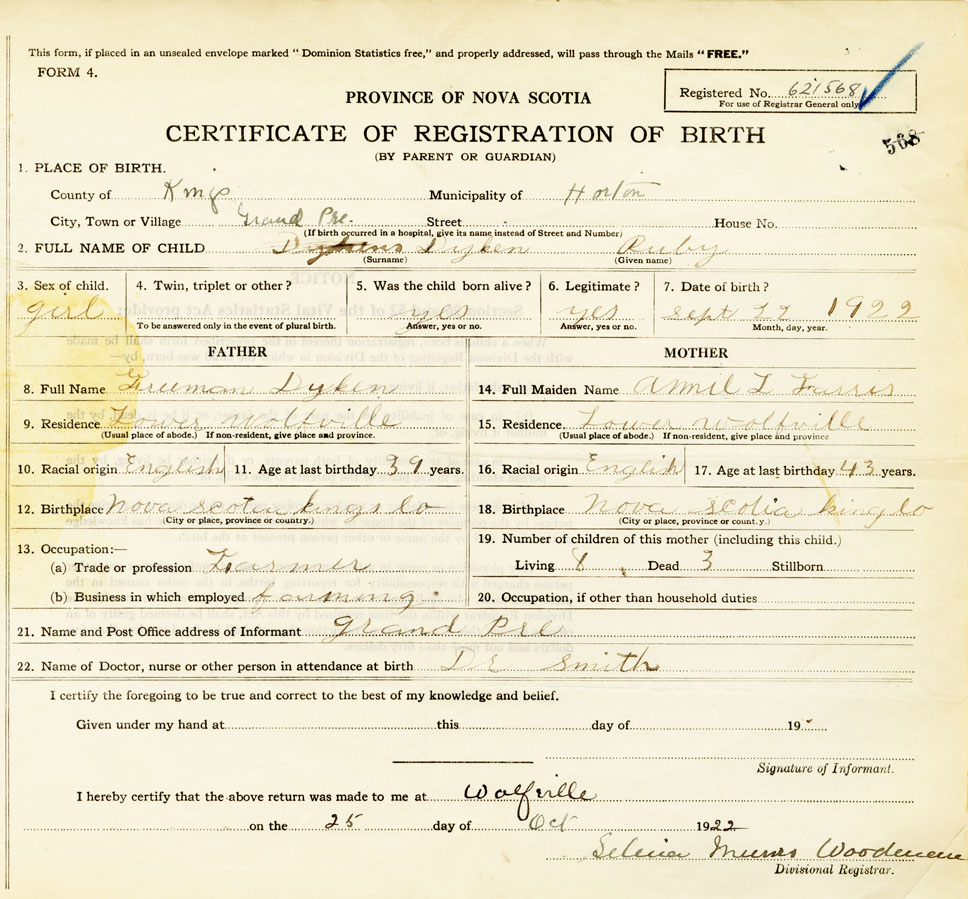 This form, if placed in an unsealed envelope marked "Dominion Statistics free," and properly addressed, will pass through the Mails "FREE."
FORM 4.
Registered No. 621568
For use of Registrar General only
PROVINCE OF NOVA SCOTIA
568
CERTIFICATE OF REGISTRATION OF BIRTH
(BY PARENT OR GUARDIAN)
1. PLACE OF BIRTH.
County of Kings Municipality of Horton
City, Town or Village Grand Pre. Street House No.
(If birth occurred in a hospital, give its name instead of Street and Number)
2. FULL NAME OF CHILD Dyken Ruby
(Surname) (Given name)
3. Sex of child. 4. Twin, triplet or other? 5. Was the child born alive? 6. Legitimate? 7. Date of birth?
girl yes yes Sept 1922
To be answered only in the event of plural birth. Answer, yes or no. Answer, yes or no. Month, day, year.
FATHER MOTHER
8. Full Name Freeman Dyken 14. Full Maiden Name Annie L Farris
9. Residence Lower Wolfville 15. Residence Lower Wolfville
(Usual place of abode.) If non-resident, give place and province. (Usual place of abode.) If non-resident, give place and province
10. Racial origin English 11. Age at last birthday 39 years. 16. Racial origin English 17. Age at last birthday 43 years.
12. Birthplace Nova Scotia kings Co 18. Birthplace Nova Scotia king Co
(City or place, province or country.) (City or place, province or county.)
13. Occupation:— 19. Number of children of this mother (including this child.)
(a) Trade or profession Farmer Living 8 Dead 3 Stillborn
(b) Business in which employed farming. 20. Occupation, if other than household duties
21. Name and Post Office address of Informant Grand Pre
22. Name of Doctor, nurse or other person in attendance at birth Dr Smith
I certify the foregoing to be true and correct to the best of my knowledge and belief.
Given under my hand at this day of 19
Signature of Informant.
I hereby certify that the above return was made to me at Wolfville
on the 25 day of Oct 1922
Selina Woodman
Divisional Registrar.